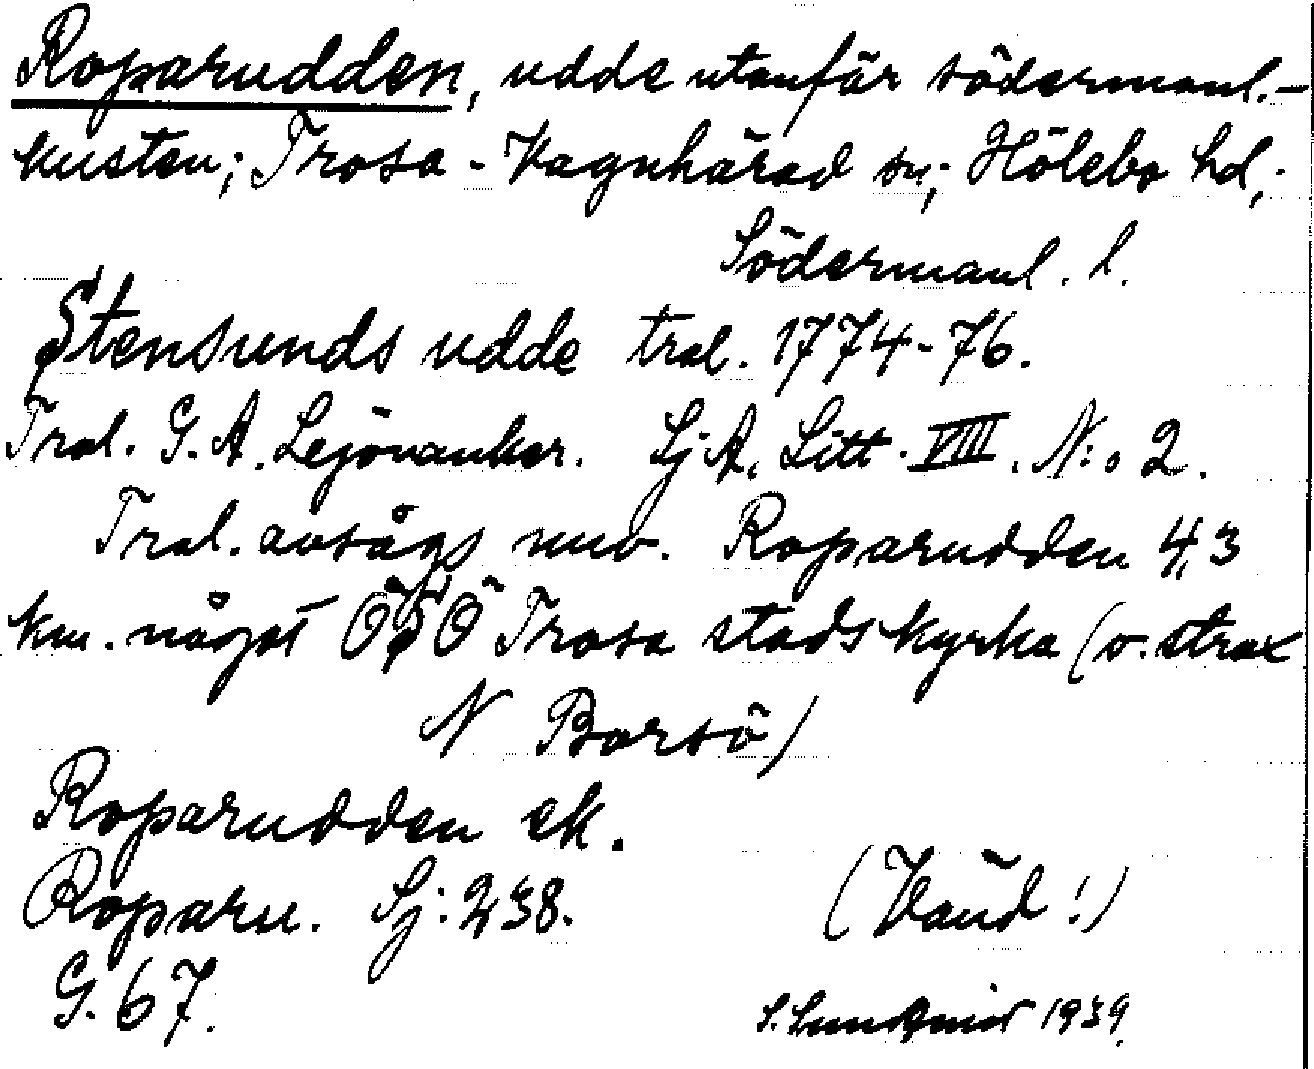 Roparudden, udde utanför södermanl.-
kusten; Trosa-Vagnhärad sn; Hölebo hd,;
Södermanl. l.
Stensunds udde tral. 1774-76.
Tral. G. A. Lejonanker. SjA, Litt. VIII. N:o 2.
Tral. avsågs nuv. Roparudden 4,3
km. något ÖSÖ Trosa stadskyrka (o. strax
N Borsö)
Roparudden ek.
Roparu. Sj: 238. (Vänd!)
G. 67.
S. Lundqvist 1939.